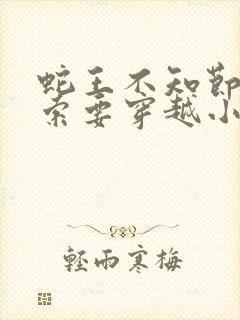 蛇王不知節
索要穿越小
輕雨寒梅